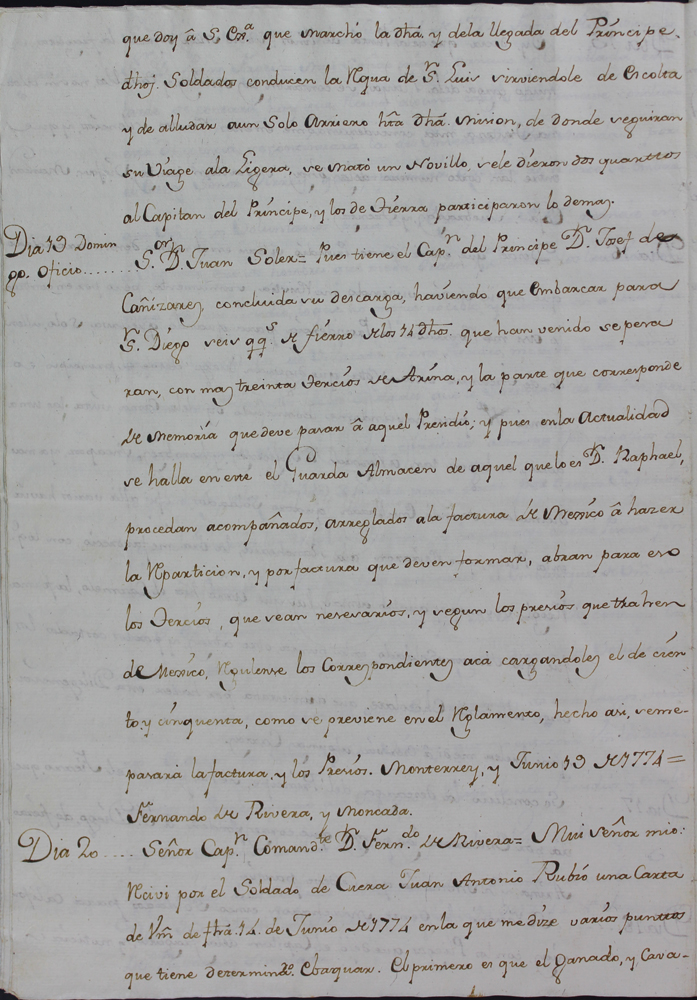 que doy â S. Exª. que marchó la dhã. y dela llegada del Príncipe.
dhos. Soldados conducen la Requa de Sn. Luis sirviendole de escolta
y de alludar aun Solo Arriero htã dhã. mision, de donde seguiran
su Viage ala Ligera, se mató un Novillo, sele dieron dos quartos
al Capitan del Príncipe, y los de tierra participaron lo demas.
Dia 19 Domin
go. Oficio........ Sor. Dn. Juan Soler= Pues tiene el Capn. del Principe Dn. Josef de
Cañizares concluida su descarga, haviendo que embarcar para
Sn. Diego seis qqs. de fierro delos 14 dhos. que han venido sepesa
ran, con mas treinta tercios de Arina, y la parte que corresponde
de Memoria que deve pasar â aquel Presidio; y pues enla Actualidad
se halla en este el Guarda Almacen de aquel quelo es Dn. Raphael,
procedan acompañados, arreglados ala factura de Messico â hazer
la Reparticion, y por factura que deven formar, abran para eso
los Tercios, que sean nesesarios, y segun los presios que trahen
de Messico, Regulense los Correspondientes acá cargandoles el de cien
to. y cinquenta, como se previene en el Reglamento, hecho asi, seme-
pasará la factura, y los Presios. Monterrey, y Junio 19 de 1774=
Fernando de Rivera, y Moncada.
Dia 20.... Señor Capn. Comandte. Dn. Ferndo. de Rivera= Mui señor mio:
Recivi por el Soldado de Cuera Juan Antonio Rubio una Carta
de Vm̃. de fhã. 14. de Junio de 1774 enla que me dize varios puntos
que tiene determindo. Ebaquar. El primero es que el ganado, y Cava-